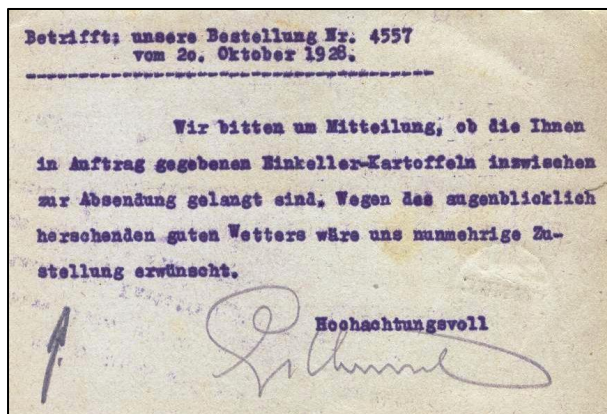 Betrifft: unsere Bestellung Nr. 4557
vom 20. Oktober 1928.
Wir bitten um Mitteilung, ob die Ihnen
in Auftrag gegebenen Einkeller-Kartoffeln inzwischen
zur Absendung gelangt sind. Wegen des augenblicklich
herschenden guten Wetters wäre uns nunmehrige Zu-
stellung erwünscht.
Hochachtungsvoll